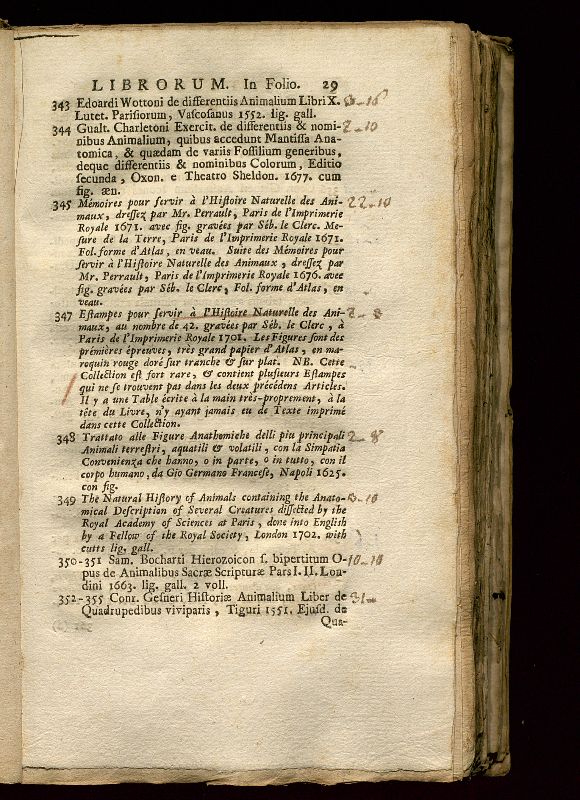 LIBRORUM. In Folio. 29
343 Edoardi Wottoni de differentiis Animalium Libri X.
Lutet. Parisiorum, Vascosanus 1552. lig. gall.
344 Gualt. Charletoni Exercit. de differentiis & nomi- 2-10
nibus Animalium, quibus accedunt Mantissa Ana-
tomica, & quædam de variis Fossilium generibus,
deque differentiis & nominibus Colorum, Editio
secunda, Oxon. e Theatro Sheldon. 1677. cum
fig. æn.
345 Mémoires pour servir à l'Histoire Naturelle des Ani- 22-10
maux, dressez par Mr. Perrault, Paris de l'Imprimerie
Royale 1671. avec fig. gravées par Séb. le Clerc. Me-
sure de la Terre, Paris de l'Imprimerie Royale 1671.
Fol. forme d'Atlas, en veau. Suite des Mémoires pour
servir à l'Histoire Naturelle des Animaux, dressez par
Mr. Perrault, Paris de l'Imprimerie Royale 1676. avec
fig. gravées par Séb. le Clerc, Fol. forme d'Atlas, en
veau.
347 Estampes pour servir à l'Histoire Naturelle des Ani-
maux, au nombre de 42. gravées par Séb. le Clerc, à
Paris de l'Imprimerie Royale 1701. Les Figures sont des
prémières épreuves, très grand papier d'Atlas, en ma-
roquin rouge doré sur tranche & sur plat. NB. Cette
Collection est fort rare, & contient plusieurs Estampes
qui ne se trouvent pas dans les deux précédens Articles.
Il y a une Table écrite à la main très-proprement, à la
tête du Livre, n'y ayant jamais eu de Texte imprimé
dans cette Collection.
348 Trattato alle Figure Anathomiche delli piu principali 2-8
Animali terrestri, aquatili & volatili, con la Simpatia
Convenienza che hanno, o in parte, o in tutto, con il
corpo humano, da Gio Germano Francese, Napoli 1625.
con fig.
349 The Natural History of Animals containing the Anato-
mical Description of Several Creatures dissected by the
Royal Academy of Sciences at Paris, done into English
by a Fellow of the Royal Society, London 1702. with
cutts lig. gall.
350-351 Sam. Bocharti Hierozoicon s. bipertitum O- 10-10
pus de Animalibus Sacræ Scripturæ Pars I. II. Lon-
dini 1663. lig. gall. 2 voll.
352-355 Conr. Gesneri Historiæ Animalium Liber de 31-
Quadrupedibus viviparis, Tiguri 1551. Ejusd. de
Qua-